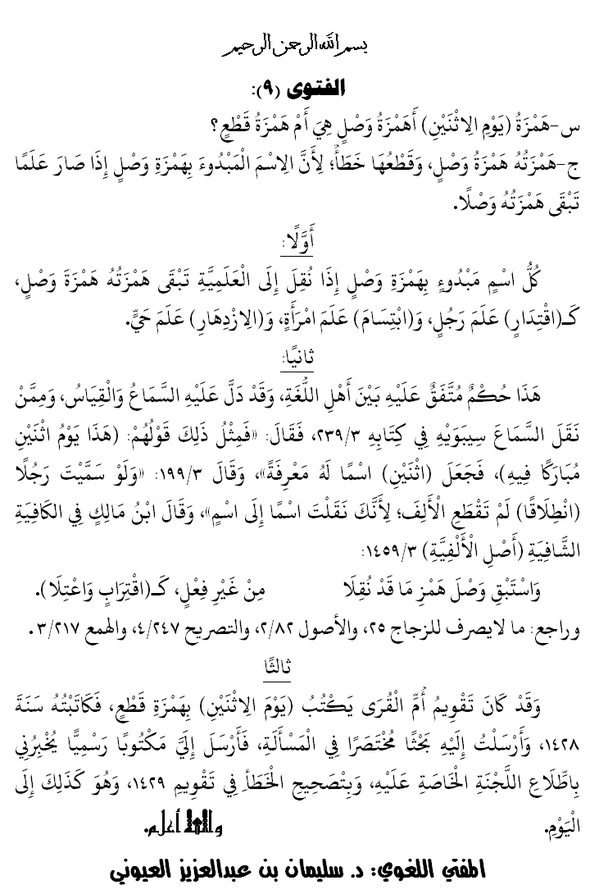 بسم الله الرحمن الرحيم
الفتوى (٩):
س-هَمْزَةُ (يَوْمِ الِاثْنَيْنِ) أَهَمْزَةُ وَصْلٍ هِيَ أَمْ هَمْزَةُ قَطْعٍ؟
ج-هَمْزَتُهُ هَمْزَةُ وَصْلٍ، وَقَطْعُهَا خَطَأٌ؛ لِأَنَّ الِاسْمَ الْمَبْدُوءَ بِهَمْزَةِ وَصْلٍ إِذَا صَارَ عَلَمًا
تَبْقَى هَمْزَتُهُ وَصْلًا.
أَوَّلًا:
كُلُّ اسْمٍ مَبْدُوءٍ بِهَمْزَةِ وَصْلٍ إِذَا نُقِلَ إِلَى الْعَلَمِيَّةِ تَبْقَى هَمْزَتُهُ هَمْزَةَ وَصْلٍ،
كَـ(اقْتِدَارٍ) عَلَمَ رَجُلٍ، وَ(ابْتِسَامَ) عَلَمَ امْرَأَةٍ، وَ(الِازْدِهَارِ) عَلَمَ حَيٍّ.
ثانيًا:
هَذَا حُكْمٌ مُتَّفَقٌ عَلَيْهِ بَيْنَ أَهْلِ اللُّغَةِ، وَقَدْ دَلَّ عَلَيْهِ السَّمَاعُ وَالْقِيَاسُ، وَمِمَّنْ
نَقَلَ السَّمَاعَ سِيبَوَيْهِ فِي كِتَابِهِ ٢٣٩/٣، فَقَالَ: «فَمِثْلُ ذَلِكَ قَوْلُهُمْ: (هَذَا يَوْمُ اثْنَيْنِ
مُبَارَكًا فِيهِ)، فَجَعَلَ (اثْنَيْنِ) اسْمًا لَهُ مَعْرِفَةً»، وَقَالَ ١٩٩/٣: «وَلَوْ سَمَّيْتَ رَجُلًا
(انْطِلَاقًا) لَمْ تَقْطَعِ الْأَلِفَ؛ لِأَنَّكَ نَقَلْتَ اسْمًا إِلَى اسْمٍ»، وَقَالَ ابْنُ مَالِكٍ فِي الكَافِيَةِ
الشَّافِيَةِ (أَصْلِ الْأَلْفِيَّةِ) ١٤٥٩/٣:
وَاسْتَبْقِ وَصْلَ هَمْزِ مَا قَدْ نُقِلَا مِنْ غَيْرِ فِعْلٍ، كَـ(اقْتِرَابٍ وَاعْتِلَا).
وراجع: ما لايصرف للزجاج ٢٥، والأصول ٢/٨٢، والتصريح ٤/٢٤٧، والهمع ٣/٢١٧ .
ثالثًا
وَقَدْ كَانَ تَقْوِيمُ أُمِّ الْقُرَى يَكْتُبُ (يَوْمَ الِاثْنَيْنِ) بِهَمْزَةِ قَطْعٍ، فَكَاتَبْتُهُ سَنَةَ
١٤٢٨، وَأَرْسَلْتُ إِلَيْهِ بَحْثًا مُخْتَصَرًا فِي الْمَسْأَلَةِ، فَأَرْسَلَ إِلَيَّ مَكْتُوبًا رَسْمِيًّا يُخْبِرُنِي
بِاطِّلَاعِ اللَّجْنَةِ الْخَاصَةِ عَلَيْهِ، وَبِتَصْحِيحِ الْخَطَأِ فِي تَقْوِيمِ ١٤٢٩، وَهُوَ كَذَلِكَ إِلَى
الْيَوْمِ. والله أعلم.
المفتي اللغوي: د. سليمان بن عبدالعزيز العيوني